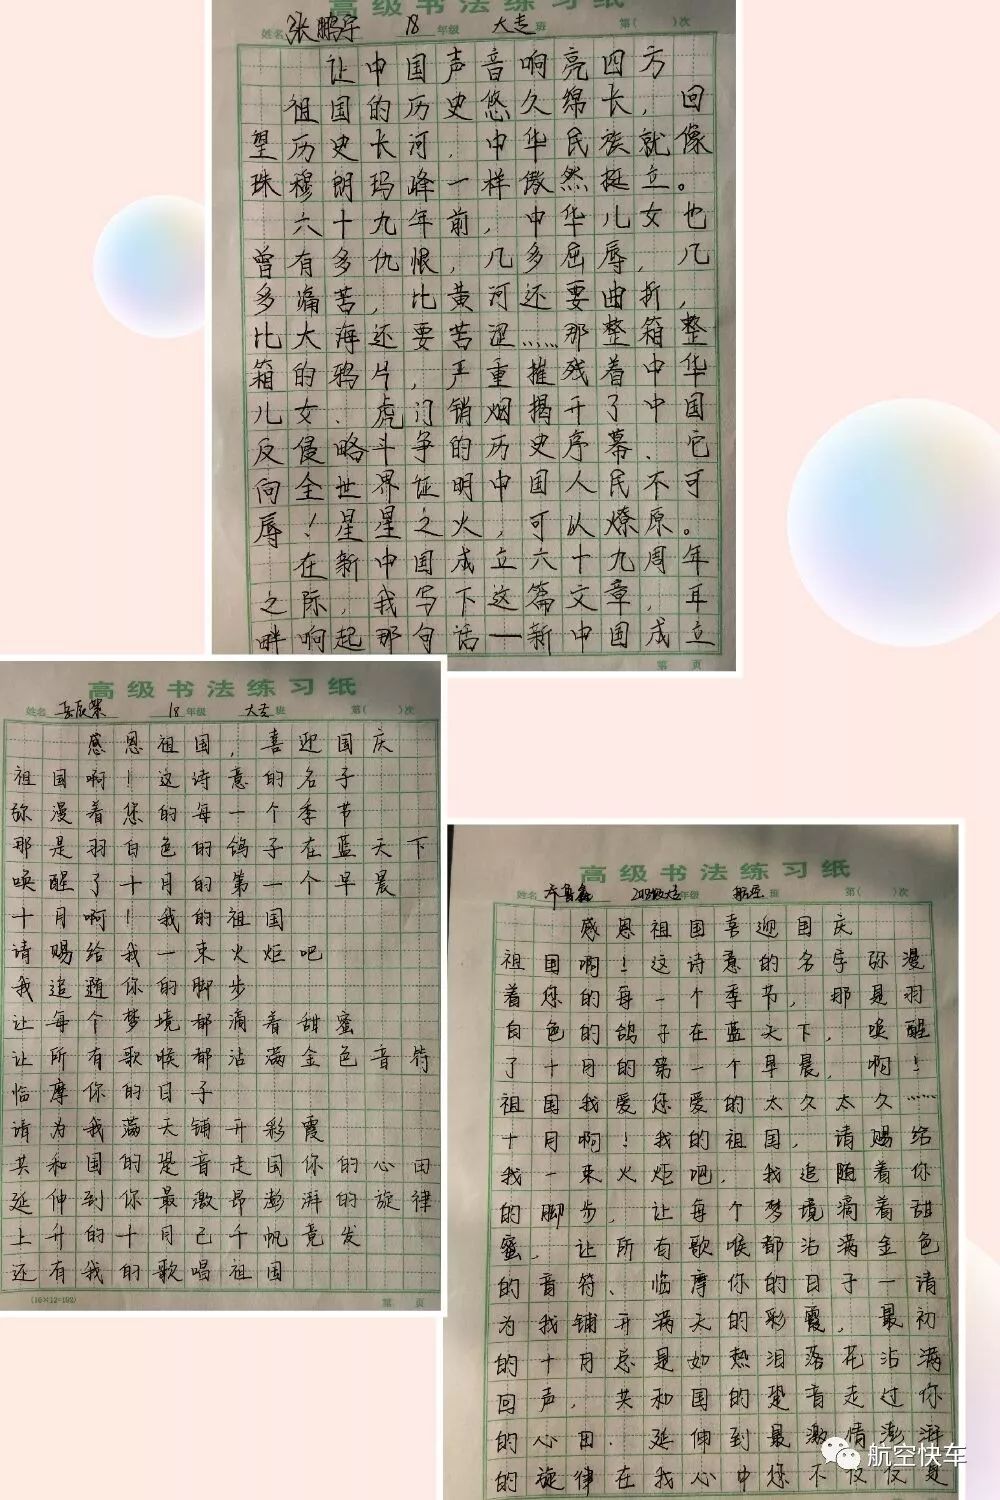 高级书法练习纸
姓名 张鹏宇 18 年级 大志 班 第( )次
让中国声音响亮四方
祖国的历史悠久绵长，回
望历史长河，中华民族就像
珠穆朗玛峰一样傲然挺立。
六十九年前，中华儿女也
曾有多仇恨，几多屈辱，几
多痛苦，比黄河还要曲折，
比大海还要苦涩……那整箱整
箱的鸦片，严重摧残着中华
儿女、虎门销烟揭开了中国
反侵略斗争的历史序幕、它
向全世界证明中国人民不可
辱！星星之火，可以燎原。
在新中国成立六十九周年
之际，我写下这篇文章，耳
畔响起那句话—新中国成立
第 页
高级书法练习纸
姓名 18 年级 大志 班 第( )次
感恩祖国，喜迎国庆
祖国啊！这诗意的名子
弥漫着您的每一个季节
那是羽白色的鸽子在蓝天下
唤醒了十月的第一个早晨
十月啊！我的祖国
请赐给我一束火炬吧
我追随你的脚步
让每个梦境都滴着甜蜜
让所有歌喉都沾满金色音符
临摩你的日子
请为我满天铺开彩霞
共和国的跫音走国你的心田
延伸到你最激昂澎湃的旋律
上升的十月已千帆竞发
还有我的歌唱祖国
(16×12=192) 第 页
高级书法练习纸
姓名 年级 班 第( )次
感恩祖国喜迎国庆
祖国啊！这诗意的名字弥漫
着您的每一个季节，那是羽
白色的鸽子在蓝天下，唤醒
了十月的第一个早晨，啊！
祖国我爱您爱的太久太久……
十月啊！我的祖国，请赐给
我一束火炬吧，我追随着你
的脚步，让每个梦境滴着甜
蜜，让所有歌喉都沾满金色
的音符、临摩你的日子一请
为我铺开满天的彩霞，最初
的十月总是如热泪落花沾满
回声，共和国的跫音走过你
的心田．延伸到最激情澎湃
的旋律在我心中您不仅仅是
航空快车